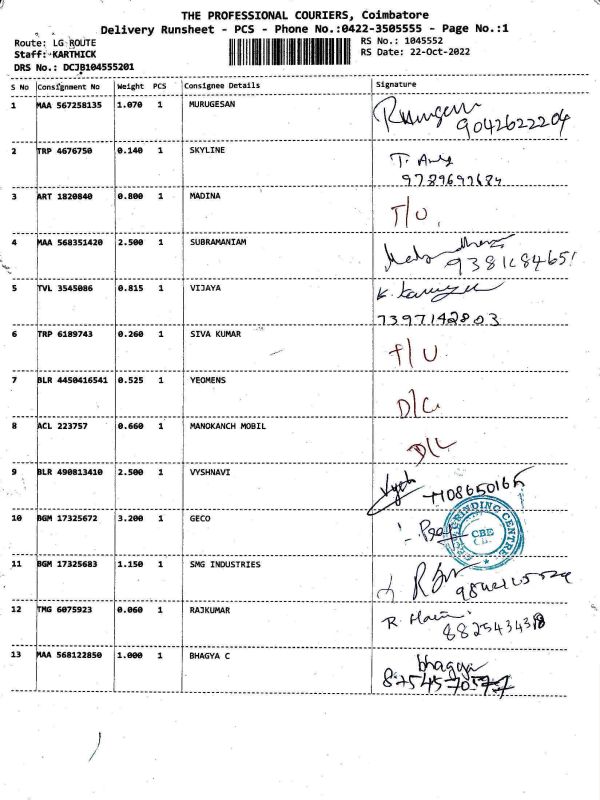 THE PROFESSIONAL COURIERS, Coimbatore
Delivery Runsheet - PCS - Phone No.:0422-3505555 - Page No.:1
Route: LG ROUTE
Staff: KARTHICK
DRS No.: DCJB104555201
RS No.: 1045552
RS Date: 22-Oct-2022
S No Consignment No Weight PCS Consignee Details Signature
1 MAA 567258135 1.070 1 MURUGESAN
9042622204
2 TRP 4676750 0.140 1 SKYLINE
9789697684
3 ART 1820840 0.800 1 MADINA T/U.
4 MAA 568351420 2.500 1 SUBRAMANIAM
5 TVL 3545086 0.815 1 VIJAYA
7397142803
6 TRP 6189743 0.260 1 SIVA KUMAR T/U
7 BLR 4450416541 0.525 1 YEOMENS D/L
8 ACL 223757 0.660 1 MANOKANCH MOBIL D/L
9 BLR 490813410 2.500 1 VYSHNAVI
10 BGM 17325672 3.200 1 GECO
GRINDING CENTRE
CBE
11 BGM 17325683 1.150 1 SMG INDUSTRIES
12 TMG 6075923 0.060 1 RAJKUMAR
13 MAA 568122850 1.000 1 BHAGYA C bhagya